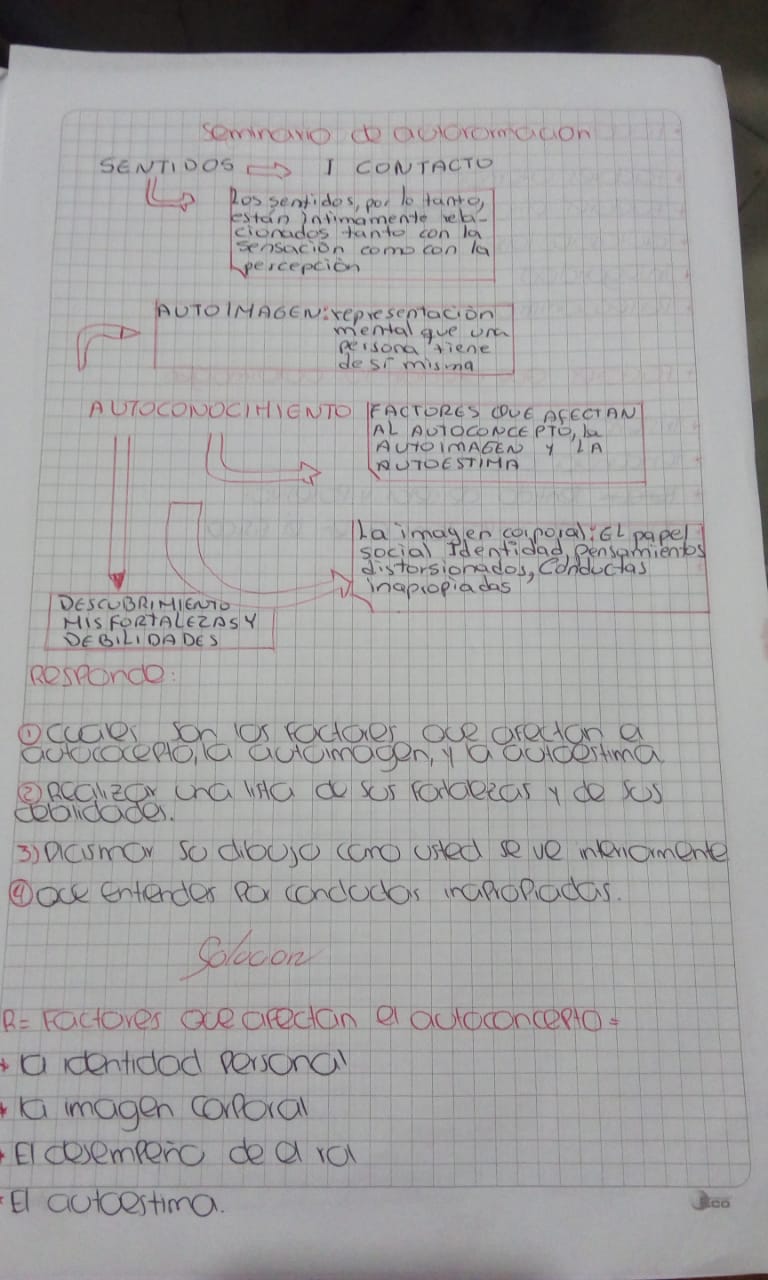 seminario de autoromacion
SENTIDOS I CONTACTO
Los sentidos, por lo tanto,
están íntimamente rela-
cionados tanto con la
sensación como con la
percepción
AUTOIMAGEN: representación
mental que una
persona tiene
de sí misma
AUTOCONOCIMIENTO
FACTORES QUE AFECTAN
AL AUTOCONCEPTO, la
AUTOIMAGEN Y LA
AUTOESTIMA
La imagen corporal: EL papel
social Identidad, pensamientos
distorsionados, Conductas
inapropiadas
DESCUBRIMIENTO
MIS FORTALEZAS Y
DEBILIDADES
Responde:
① cuales son los factores que afectan el
autococepto, la autoimagen, y la autoestima
② Realizar una lista de sus fortalezas y de sus
debilidades.
3) Placsmar su dibujo como usted se ve interiormente
④ que entendes por conductas inapropiadas.
Solucon
R= Factores que afectan el autoconcepto=
* la identidad personal
* la imagen corporal
* El desempeño de el rol
* El autoestima.